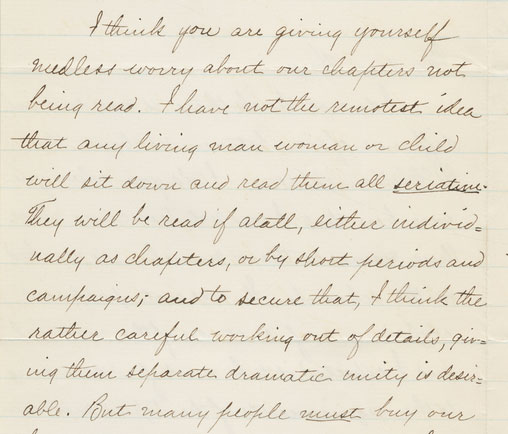 I think you are giving yourself
needless worry about our chapters not
being read. I have not the remotest idea
that any living man woman or child
will sit down and read them all seriatim.
They will be read if atall, either individ=
ually as chapters, or by short periods and
campaigns; and to secure that, I think the
rather careful working out of details, giv=
ing them separate dramatic unity is desir=
able. But many people must buy our